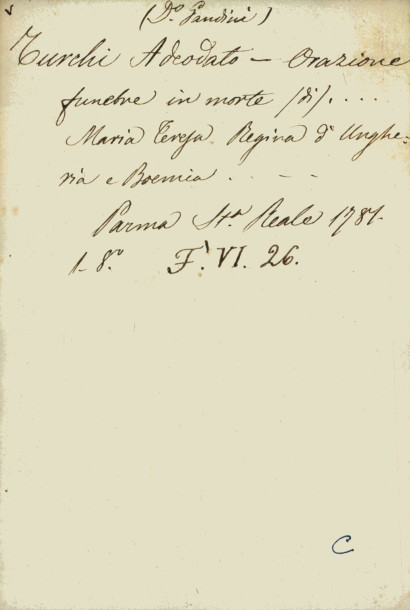 (D.º Gandini)
Turchi Adeodato — Orazione
funebre in morte /di/. . . .
Maria Teresa Regina d'Unghe-
ria e Boemia . . - -
Parma St.ª Reale 1781.
1. 8.vo F. VI. 26.
C